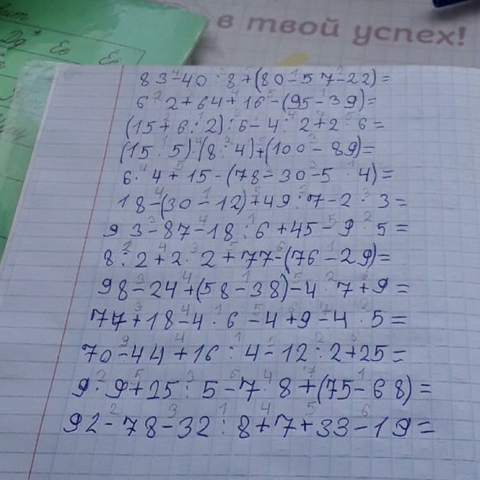 в твой успех!
83-40:8+(80-57-22)=
6·2+64+16-(95-39)=
(15+6:2):6-4:2+2·6=
(15:5)·(8:4)+(100-89)=
6·4+15-(78-30-5·4)=
18-(30-12)+49:7-2·3=
93-87-18:6+45-9·5=
8:2+2·2+77-(76-29)=
98-24+(58-38)-4·7+9=
77+18-4·6-4+9-4·5=
70-44+16:4-12:2+25=
9·9+25:5-7·8+(75-68)=
92-78-32:8+7+33-19=